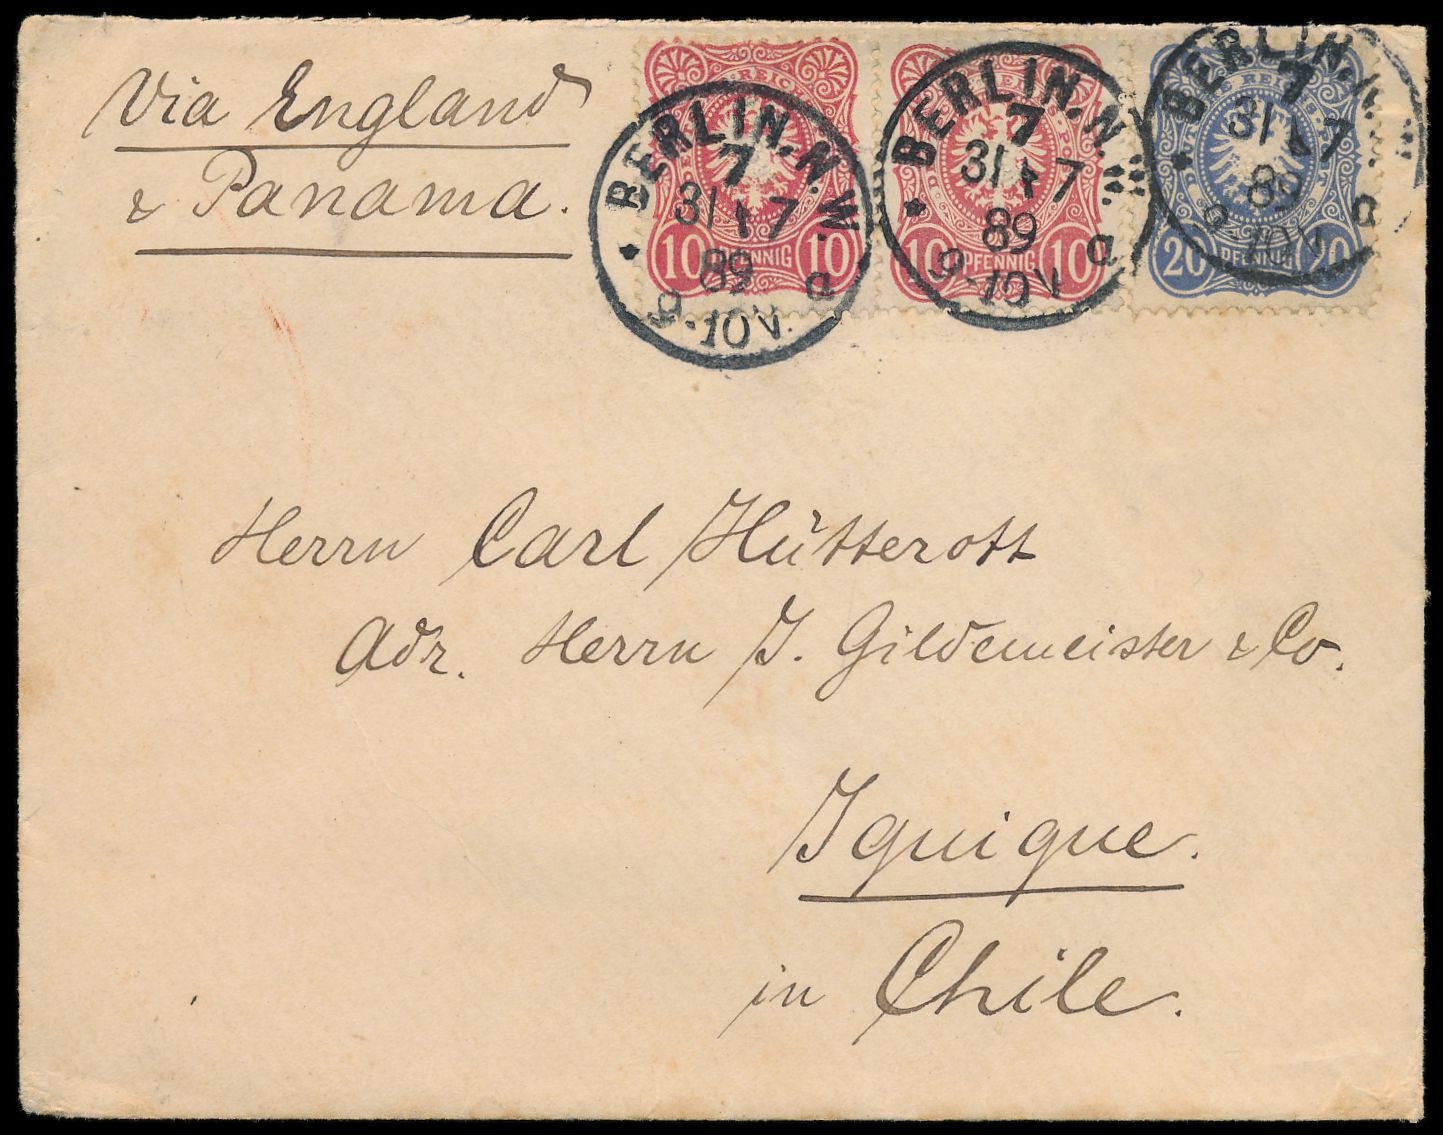 Via England
& Panama.
REICH
10 PFENNIG 10
10 PFENNIG 10
20 PFENNIG 20
BERLIN, N.W.
7
31 7
89
9-10V.
a
BERLIN, N.W.
7
31 7
89
9-10V
a
BERLIN, N.W.
7
31 7
89
9-10V
a
Herrn Carl Hütterott
Adr. Herrn J. Gildemeister & Co.
Iquique.
in Chile.